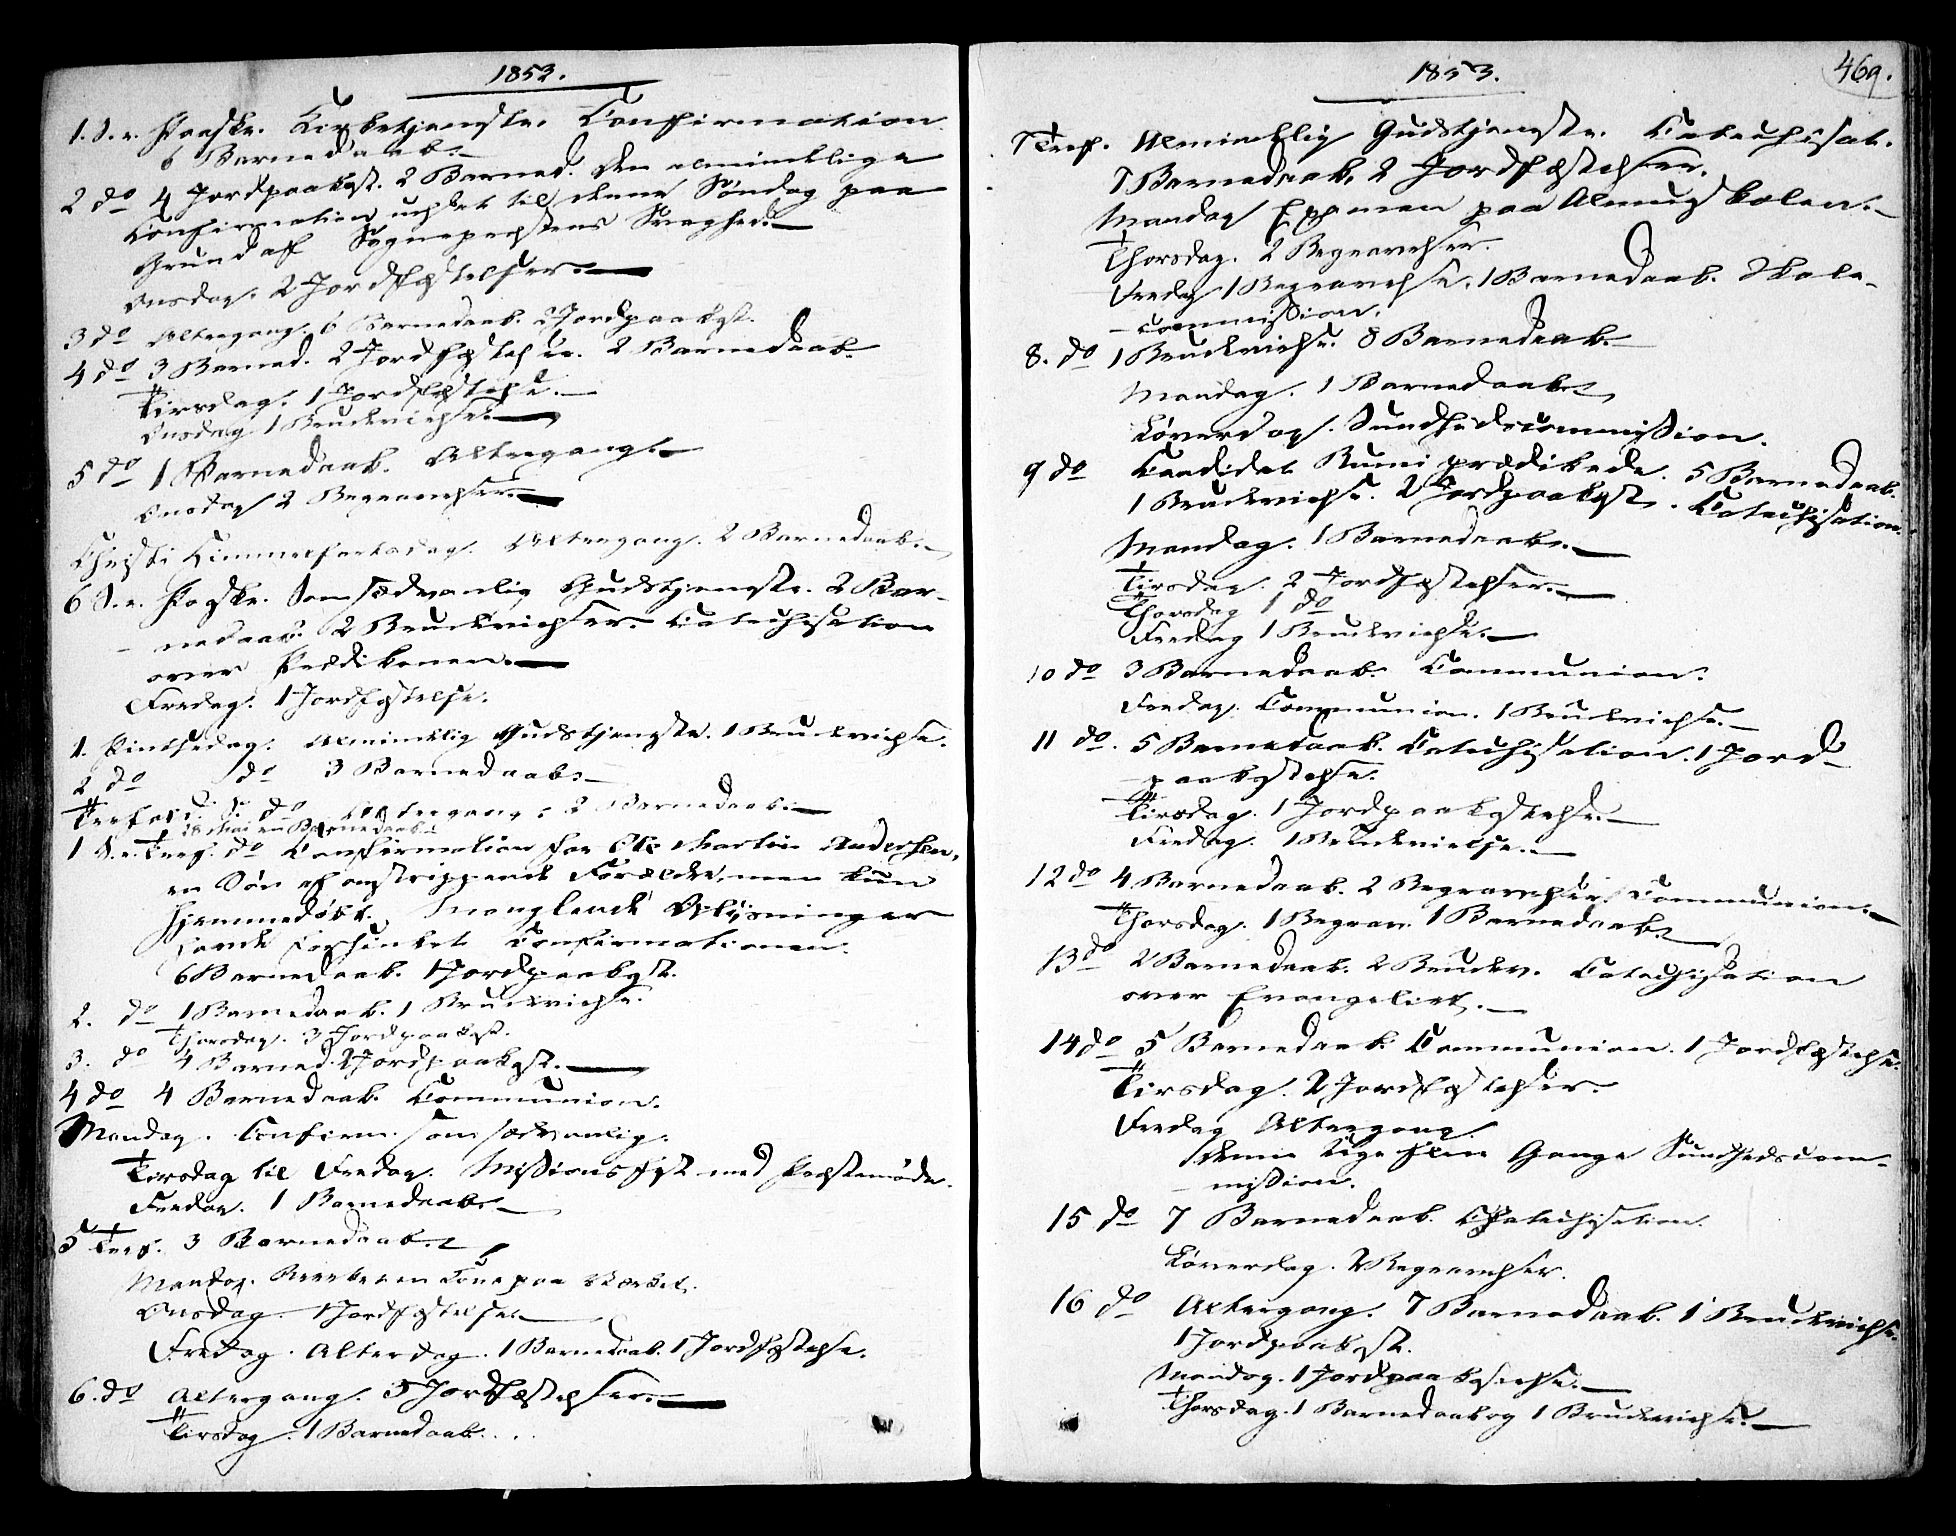 1853.
1. S. e. Paaske. Kirketjeneste. Confirmation.
6 Barnedaab.
2 do 4 Jordpaakast. 2 Barned. Den almindelige
Confirmation udsat til denne Søndag paa
Grund af Sognepræstens Svaghed.
Onsdag. 2 Jordfæstelser.
3 do Altergang. 6 Barnedaab. 2 Jordpaakast.
4 do 3 Barned. 2 Jordfæstelser. 2 Barnedaab.
Tirsdag. 1 Jordfæstelse.
Onsdag 1 Brudevielse.
5 do 1 Barnedaab. Altergang.
Onsdag 2 Begravelser.
Christi Himmelfartsdag. Altergang. 2 Barnedaab.
6 S. e. Paaske. Som sædvanlig Gudstjeneste. 2 Bar-
nedaab. 2 Brudevielser. Catechisation
over Prædikenen.
Fredag. 1 Jordfæstelse.
1. Pintsedag. Almindelig Gudstjeneste. 1 Brudevielse.
2 do do 3 Barnedaab.
Trefol. S. do Altergang. 2 Barnedaab.
en Barnedaab
1 S. e. Tref. do Confirmation for Ole Martin Andersen,
en Søn af omstrippende Forældre, men kun
hjemmedøbt. Manglende Oplysninger
havde forsinket Confirmationen.
6 Barnedaab. 1 Jordpaakast.
2. do 1 Barnedaab. 1 Brudevielse.
Thorsdag. 3 Jordpaakast.
3. do 4 Barned. 2 Jordpaakast.
4 do 4 Barnedaab. Communion.
Mandag. Confirm. som sædvanlig.
Tirsdag til Fredag. Missionsfest med Præstemøde.
Fredag. 1 Barnedaab.
5 Tref. 3 Barnedaab.
Mandag. paa Værket.
Onsdag. 1 Jordfæstelse.
Fredag. Alterdag. 1 Barnedaab. 1 Jordfæstelse.
6. do Altergang. 3 Jordfæstelser.
Tirsdag. 1 Barnedaab.
1853.
469.
7 Tref. Almindelig Gudstjeneste. Catechisat.
7 Barnedaab, 2 Jordfæstelser.
Mandag Examen paa Almueskolen.
Thorsdag. 2 Begravelser.
Fredag 1 Begravelse. 1 Barnedaab. Skole-
commission.
8. do 1 Brudevielse. 8 Barnedaab.
Mandag. 1 Barnedaab.
Løverdag. Sundhedscommission.
9 do Candidat prædikede. 5 Barnedaab.
1 Brudevielse. 2 Jordpaakast. Catechisation.
Mandag. 1 Barnedaab.
Tirsdag. 2 Jordfæstelser.
Thorsdag 1 do
Fredag 1 Brudevielse.
10 do 3 Barnedaab. Communion.
Fredag. Communion. 1 Brudevielse.
11 do. 5 Barnedaab. Catechisation. 1 Jord-
paakastelse.
Tirsdag. 1 Jordpaakastelse.
Fredag. 1 Brudevielse.
12 do 4 Barnedaab. 2 Begravelser. Communion.
Thorsdag. 1 Begrav. 1 Barnedaab.
13 do 2 Barnedaab. 2 Brudev. Catechisation
over Evangeliet.
14 do 5 Barnedaab. Communion. 1 Jordfæstelse.
Tirsdag. 2 Jordfæstelser.
Fredag Altergang.
Denne Uge flere Gange Sundhedscom-
mission.
15 do 7 Barnedaab. Catechisation.
Løverdag. 2 Begravelser.
16 do Altergang. 7 Barnedaab. 1 Brudevielse.
1 Jordpaakast.
Mandag. 1 Jordpaakastelse.
Thorsdag. 1 Barnedaab og 1 Brudevielse.